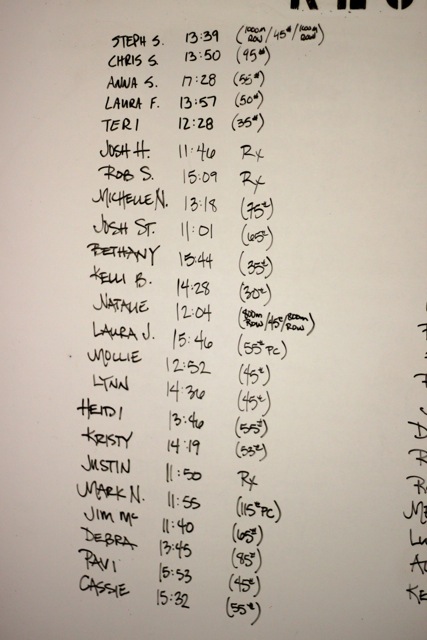 STEPH S. 13:39 (1000m ROW/45#/1000m ROW)
CHRIS S. 13:50 (95#)
ANNA S. 17:28 (55#)
LAURA F. 13:57 (50#)
TERI 12:28 (35#)
JOSH H. 11:46 Rx
ROB S. 15:09 Rx
MICHELLE N. 13:18 (75#)
JOSH ST. 11:01 (65#)
BETHANY 15:44 (35#)
KELLI B. 14:28 (30#)
NATALIE 12:04 (800m ROW/45#/800m ROW)
LAURA J. 15:46 (55# PC)
MOLLIE 12:52 (45#)
LYNN 14:36 (45#)
HEIDI 13:46 (55#)
KRISTY 14:19 (53#)
JUSTIN 11:50 Rx
MARK N. 11:55 (115# PC)
JIM Mc 11:40 (65#)
DEBRA 13:45 (85#)
RAVI 15:53 (45#)
CASSIE 15:32 (55#)